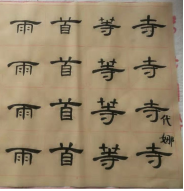 寺寺寺寺
等等等等
首首首首
雨雨雨雨
代娜